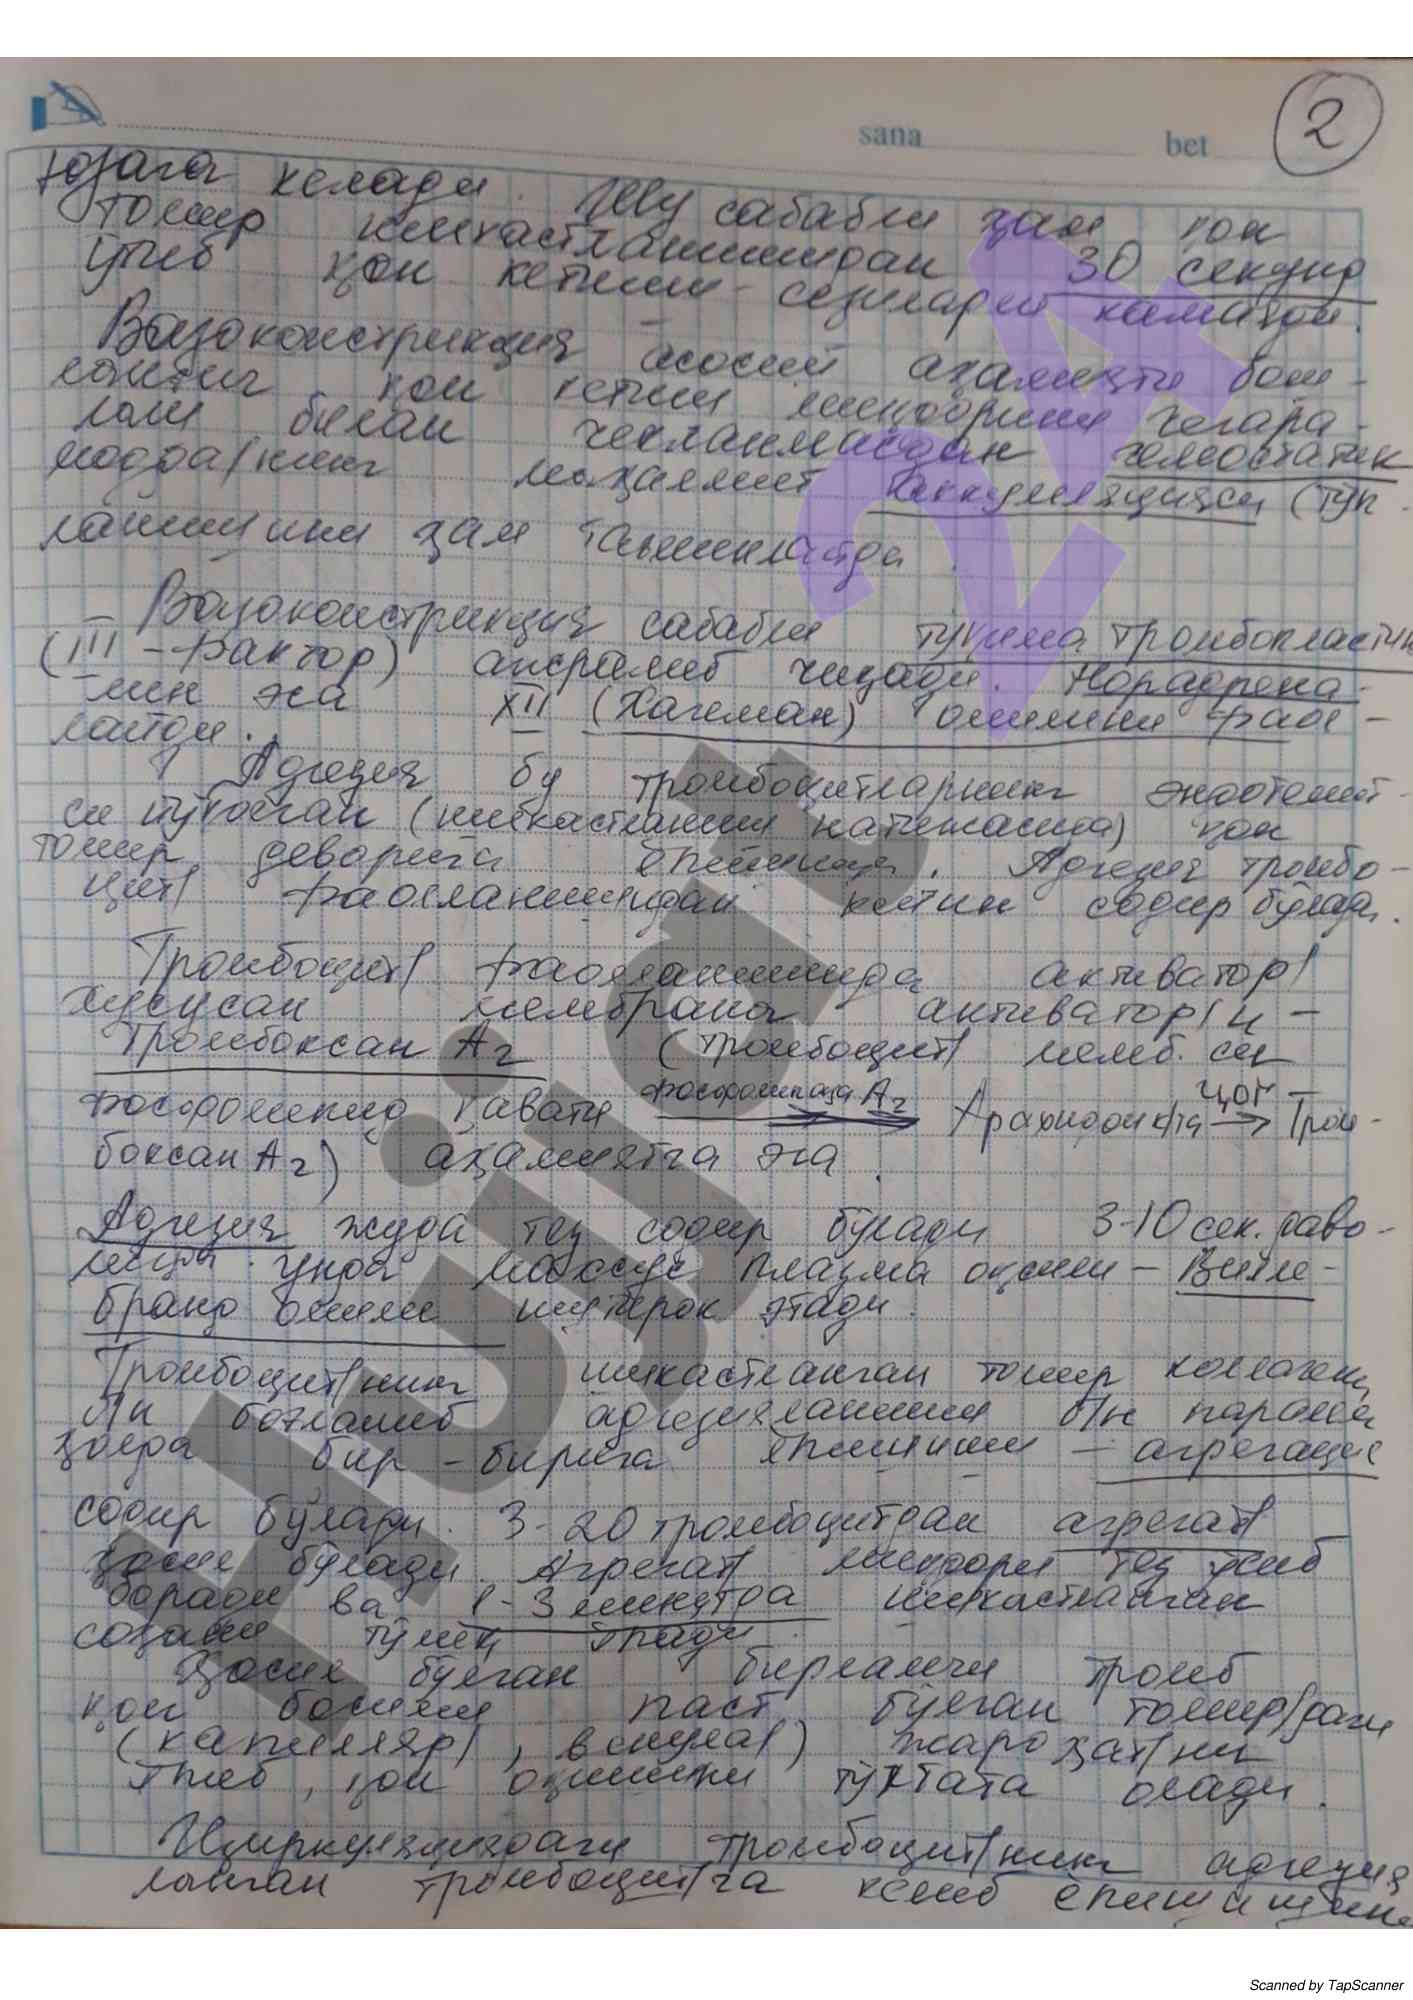 sana bet 2
юзага келади. Шу сабабли ҳам қон
томир шикастланишидан 30 секунд
ўтиб қон кетиши сезиларли камаяди.
Вазоконстрикция асосий аҳамияти бош-
ланғич қон кетиш миқдорини чегара-
лаш билан чекланмасдан гемостатик
модда/нинг маҳаллий аккумуляцияси (тўп
ланишини ҳам таъминлайди.
Вазоконстрикция сабабли тўқима тромбопластин
(III - фактор) ажралиб чиқади. Норадрена-
лин эса XII (Хагеман) омилини фаол-
лайди.
Адгезия бу тромбоцитларнинг эндотелий-
си йўқолган (шикастланиш натижасида) қон
томир деворига ёпишиши. Адгезия тромбо-
цит/ фаолланишидан кейин содир бўлади.
Тромбоцит/ фаолланишида активатор/
хусусан мембрана активатор/и -
Тромбоксан А2 (тромбоцит/ мемб. си
фосфолипид қавати фосфолипаза А2 Арахидон к/та ЦОГ → Тром-
боксан А2) аҳамиятга эга.
Адгезия жуда тез содир бўлади 3-10 сек. даво-
мида. Унда махсус плазма оқсили - Вилле-
бранд омили иштирок этади.
Тромбоцит/нинг шикастланган томир коллагени
б/н боғланиб адгезияланиши б/н параллел
ҳолда бир - бирига ёпишиши - агрегация
содир бўлади. 3-20 тромбоцитдан агрегат/
ҳосил бўлади. Агрегат/ миқдори тез ўсиб
боради ва 1-3 минутда шикастланган
соҳани тўлиқ ёпади.
Ҳосил бўлган бирламчи тромб
қон босими паст бўлган томир/даги
(капилляр/, венула/) жароҳат/ни
ёпиб, қон оқишини тўхтата олади.
Циркуляциядаги тромбоцит/нинг адгезия
ланган тромбоцит/га келиб ёпишишини
Hujjat 24
Scanned by TapScanner